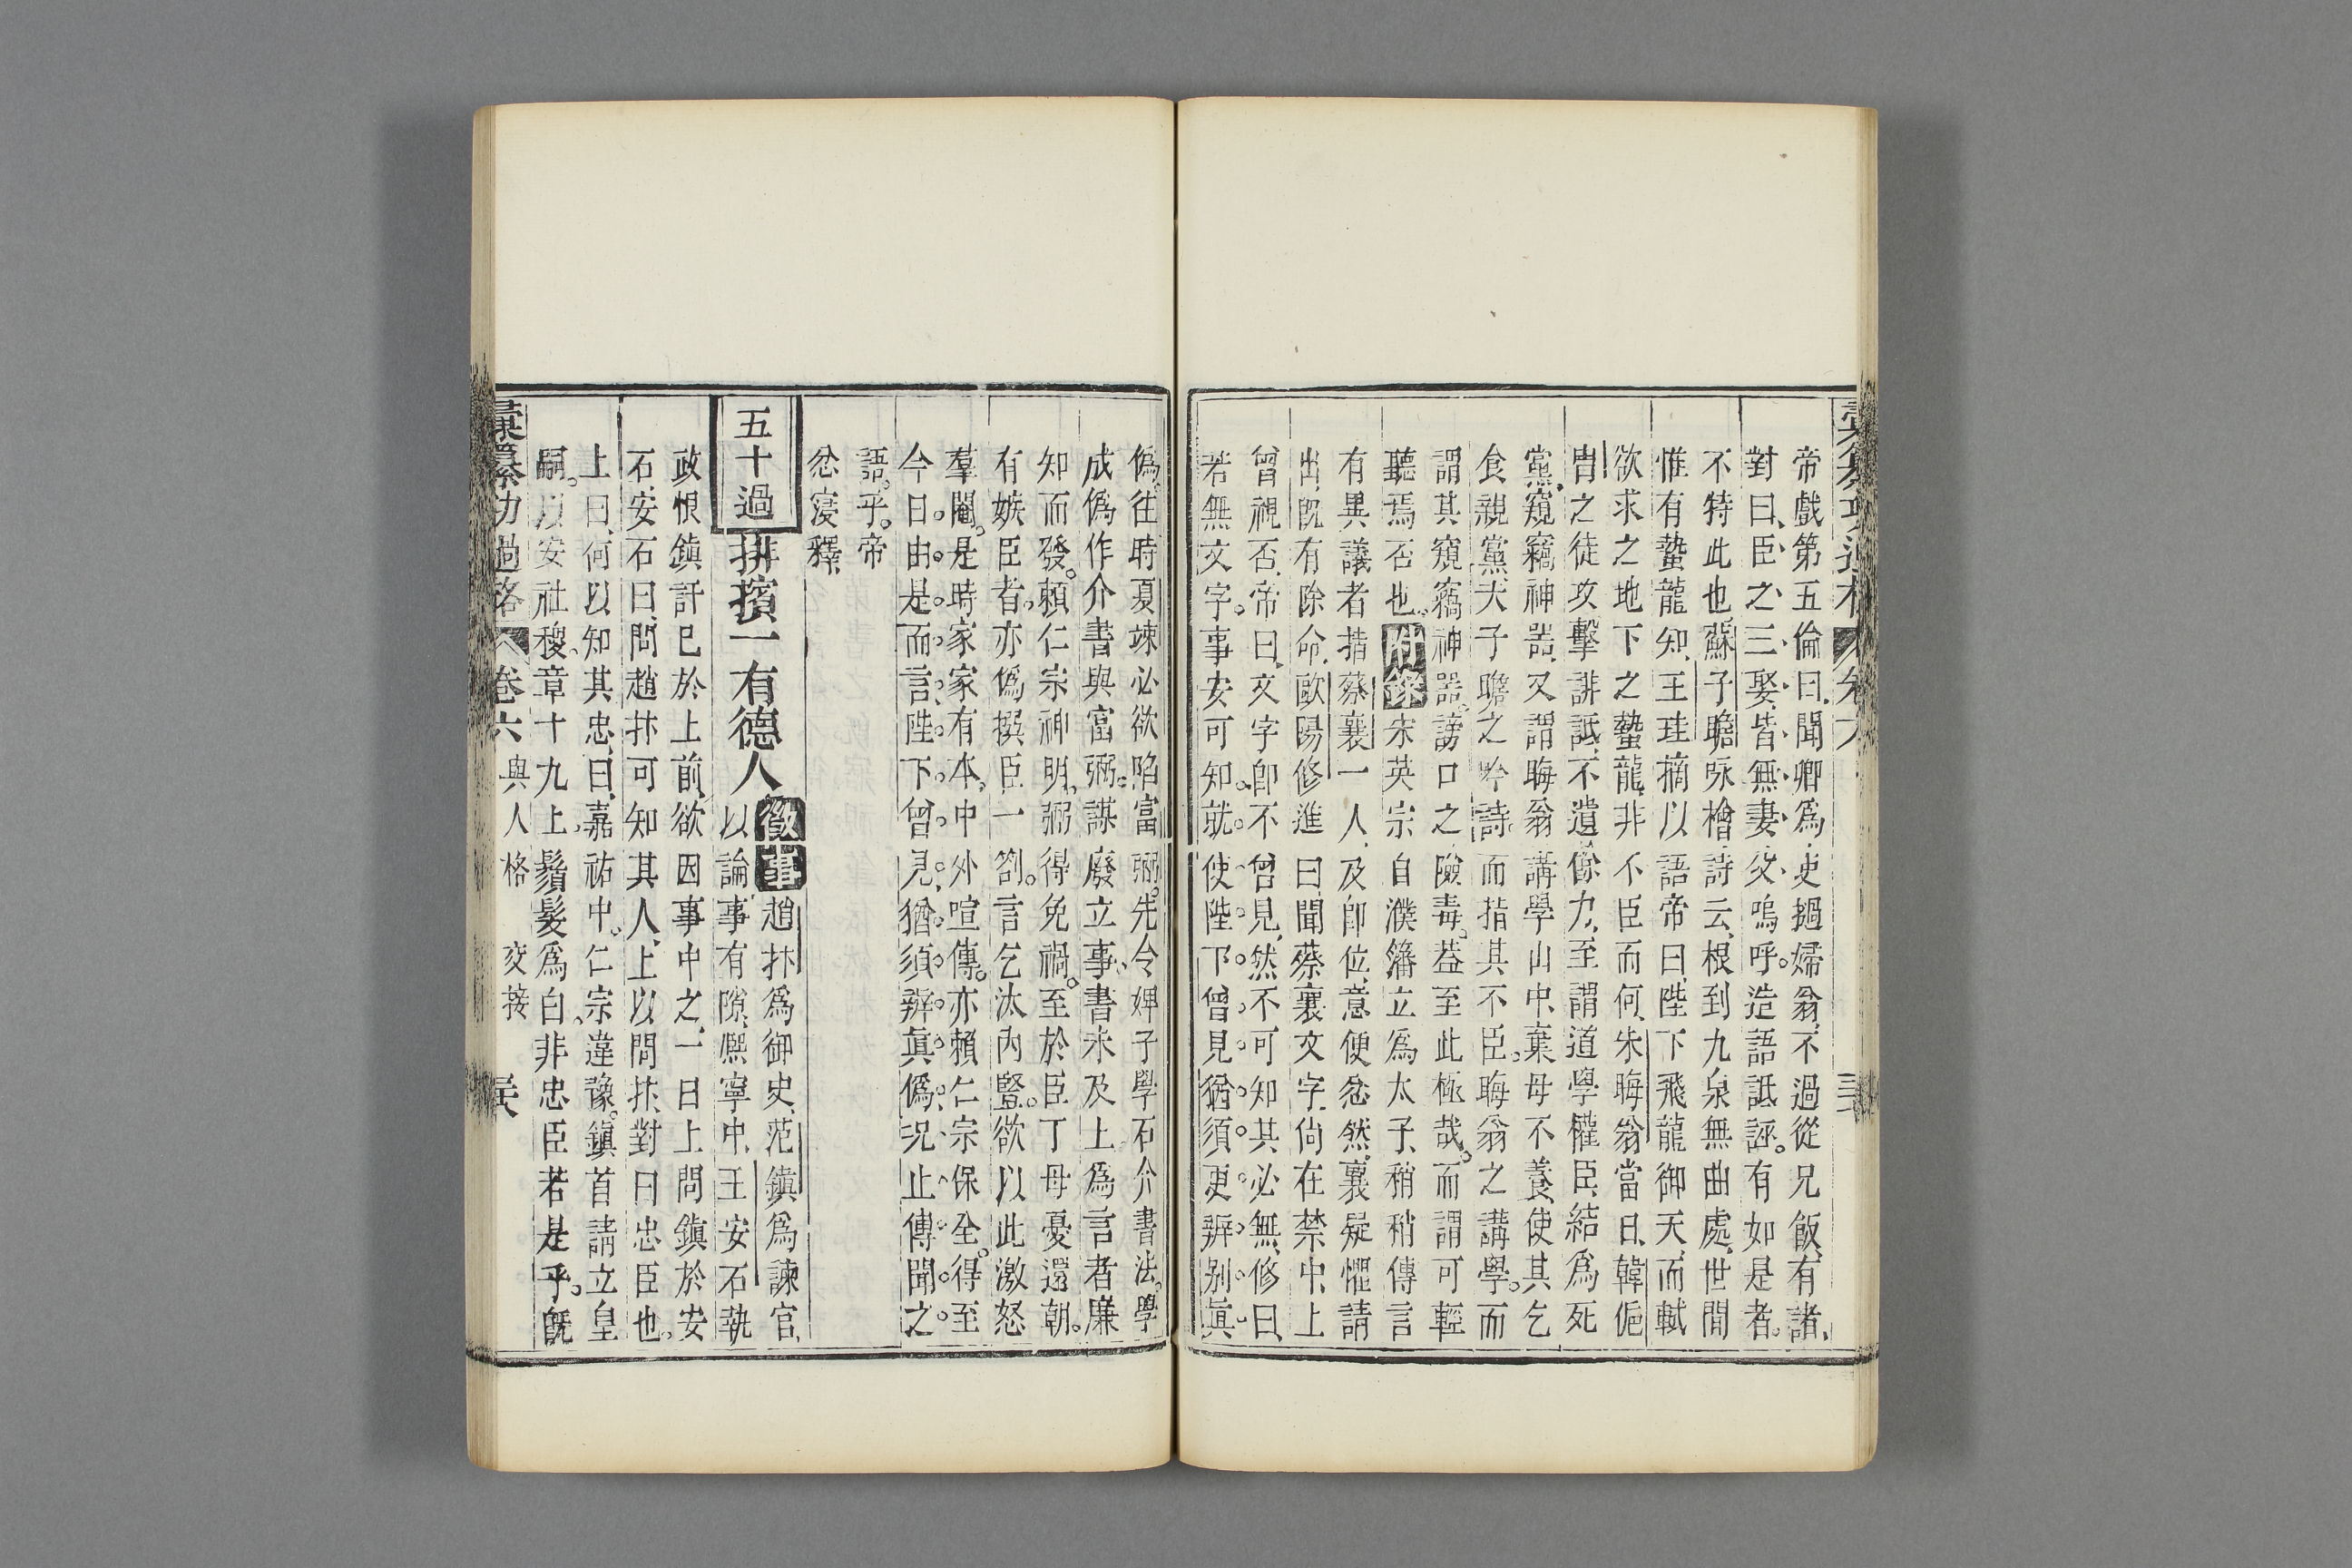 帝戲第五倫曰、聞卿為吏撾婦翁、不過從兄飯、有諸、
對曰、臣之三娶、皆無妻父、嗚呼。造語詆誣。有如是者。
不特此也、蘇子瞻咏檜詩云、根到九泉無曲處、世間
惟有蟄龍知、王珪摘以語帝曰、陛下飛龍御天、而軾
欲求之地下之蟄龍、非不臣而何、朱晦翁當日、韓侂
冑之徒攻擊誹詆、不遺餘力、至謂道學權臣、結為死
黨、窺竊神器、又謂晦翁講學山中、棄母不養、使其乞
食親黨、夫子瞻之吟詩。而指其不臣。晦翁之講學。而
謂其窺竊神器、謗口之險毒。葢至此極哉。而謂可輕
聽焉否也。附錄宋英宗自濮籓立為太子、稍稍傳言
有異議者指蔡襄一人、及卽位、意便忿然、襄疑懼請
出、旣有除命、歐陽修進曰、聞蔡襄文字、尚在禁中、上
曾視否、帝曰、文字卽不曾見、然不可知其必無、修曰、
若無文字。事安可知。就使陛下曾見。猶須更辨别眞
僞。往時夏竦必欲陷富弼。先令婢子學石介書法。學
成僞作介書與富弼。謀廢立事、書未及上為言者廉
知而發。賴仁宗神明、弼得免禍。至於臣丁母憂還朝。
有嫉臣者、亦僞撰臣一劄。言乞汰內豎。欲以此激怒
羣閹。是時家家有本、中外喧傳。亦賴仁宗保全。得至
今日。由是而言、陛下曾見、猶須辨眞僞、況止傳聞之
語乎。帝
忿寖釋、
五十過 排擯一有德人 徵事 趙抃為御史、范鎮為諫官、
以論事有隙、熙寧中、王安石執
政恨鎮訐已於上前、欲因事中之、一日上問鎮於安
石、安石曰、問趙抃可知其人、上以問抃、對曰忠臣也、
上曰、何以知其忠、曰、嘉祐中。仁宗違豫。鎮首請立皇
嗣。以安社稷、章十九上、鬚髮為白、非忠臣若是乎。旣
彙纂功過格 卷六 與人格 交接